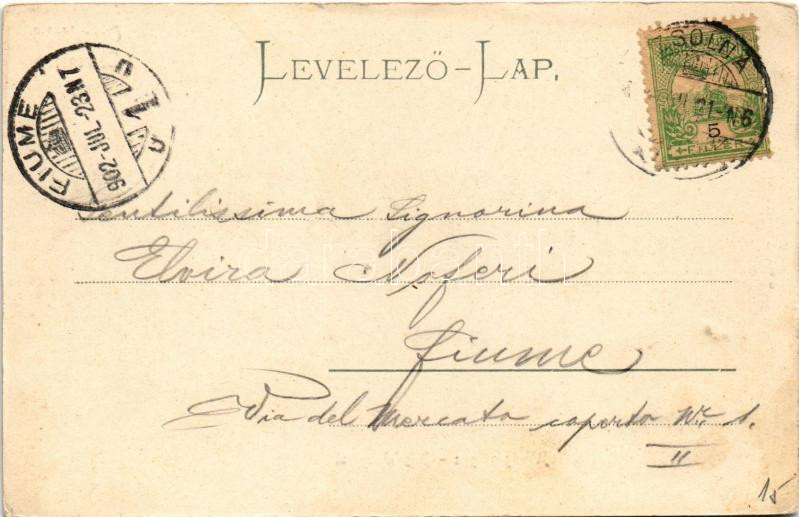 LEVELEZŐ-LAP.
FIUME
902-JUL.-23 N7
ZSOLNA
21-N6
5
FILLÉR
Gentilissima Signorina
Elvira Noferi
Fiume
Via del Mercato coperto Nr. 1.
II
darabanth
15